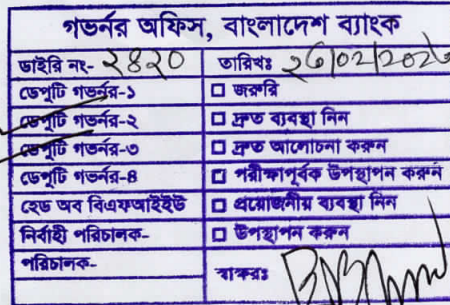 গভর্নর অফিস, বাংলাদেশ ব্যাংক
ডাইরি নং- ২৪২০ তারিখঃ
ডেপুটি গভর্নর-১ □ জরুরি
ডেপুটি গভর্নর-২ □ দ্রুত ব্যবস্থা নিন
ডেপুটি গভর্নর-৩ □ দ্রুত আলোচনা করুন
ডেপুটি গভর্নর-৪ □ পরীক্ষাপূর্বক উপস্থাপন করুন
হেড অব বিএফআইইউ □ প্রয়োজনীয় ব্যবস্থা নিন
নির্বাহী পরিচালক- □ উপস্থাপন করুন
পরিচালক- স্বাক্ষরঃ